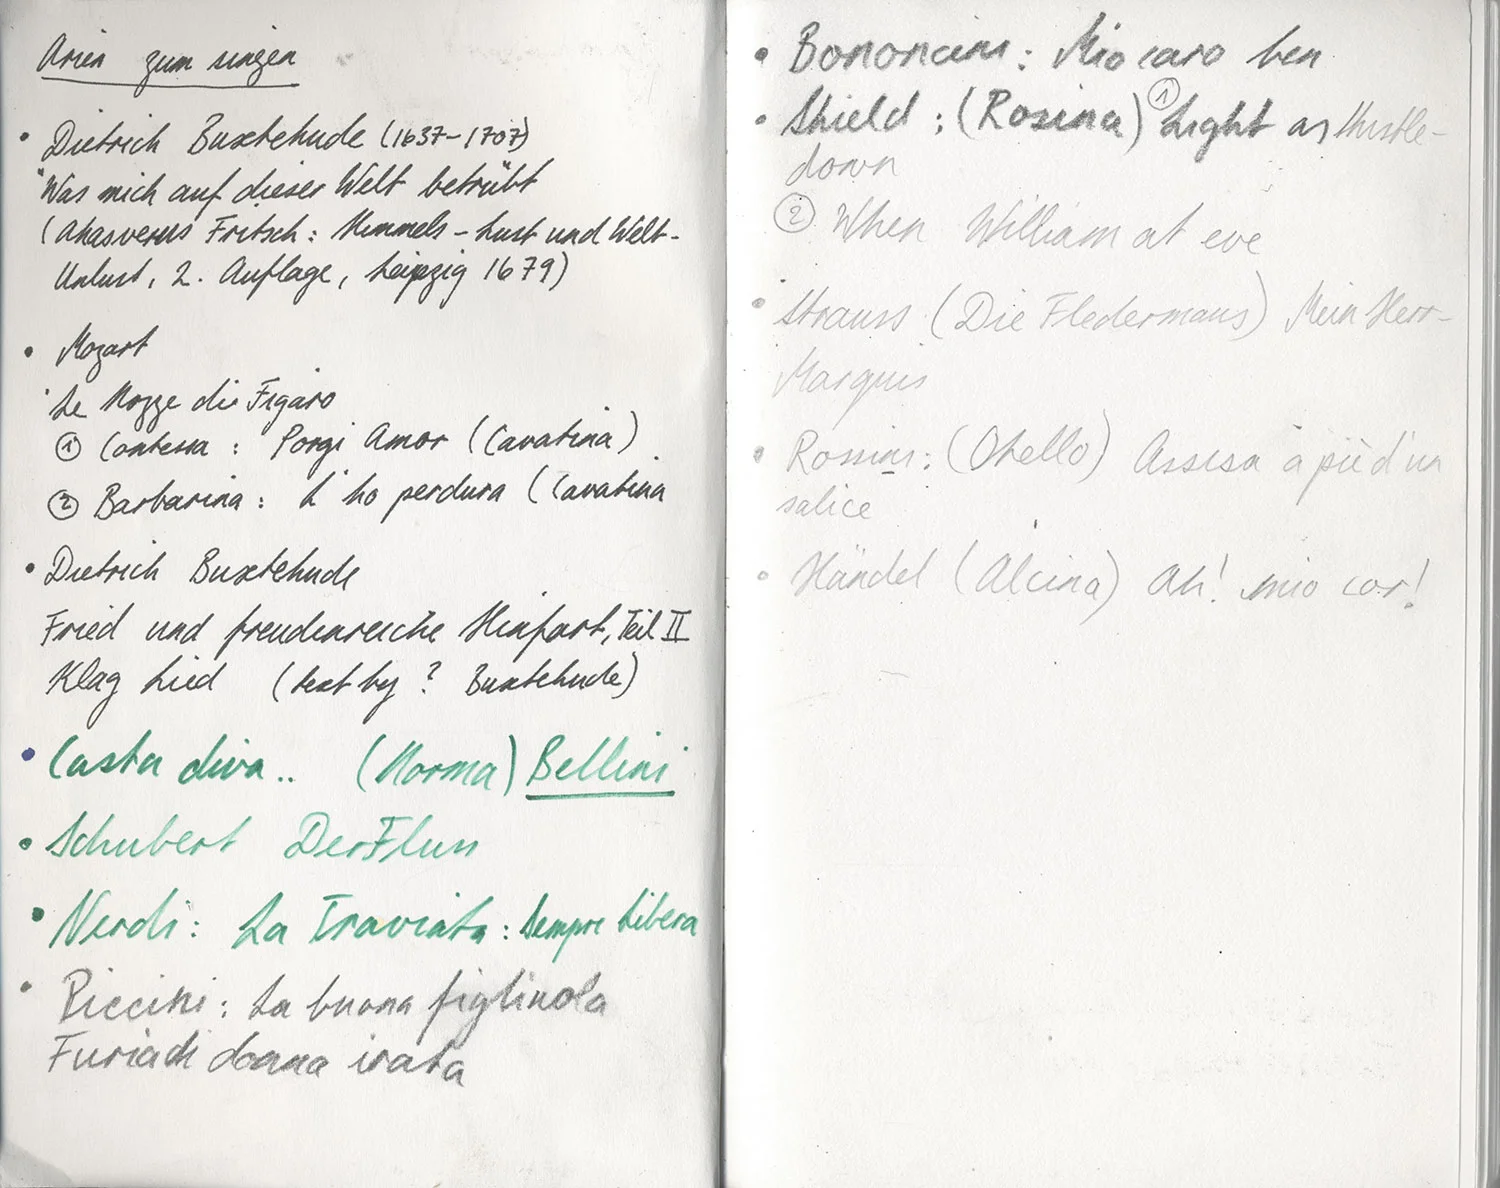 Arien zum singen
• Dietrich Buxtehude (1637-1707)
"Was mich auf dieser Welt betrübt
(Ahasverus Fritsch: Himmels-Lust und Welt-
Unlust, 2. Auflage, Leipzig 1679)
• Mozart
Le Nozze die Figaro
① Contessa : Porgi Amor (Cavatina)
② Barbarina : L'ho perdura (Cavatina
• Dietrich Buxtehude
Fried und freudenreiche Hinfart, Teil II
Klag Lied (text by ? Buxtehude)
• Casta diva.. (Norma) Bellini
• Schubert Der Fluss
• Verdi: La Traviata: Sempre Libera
• Piccini: La buona figliuola
Furia di donna irata
• Bononcini: Mio caro ben
• Shield: (Rosina) ① Light as thistle-
down
② When William at eve
• Strauss (Die Fledermaus) Mein Herr-
Marquis
• Rossini: (Otello) Assisa a piè d'un
salice
• Händel (Alcina) Ah! mio cor!